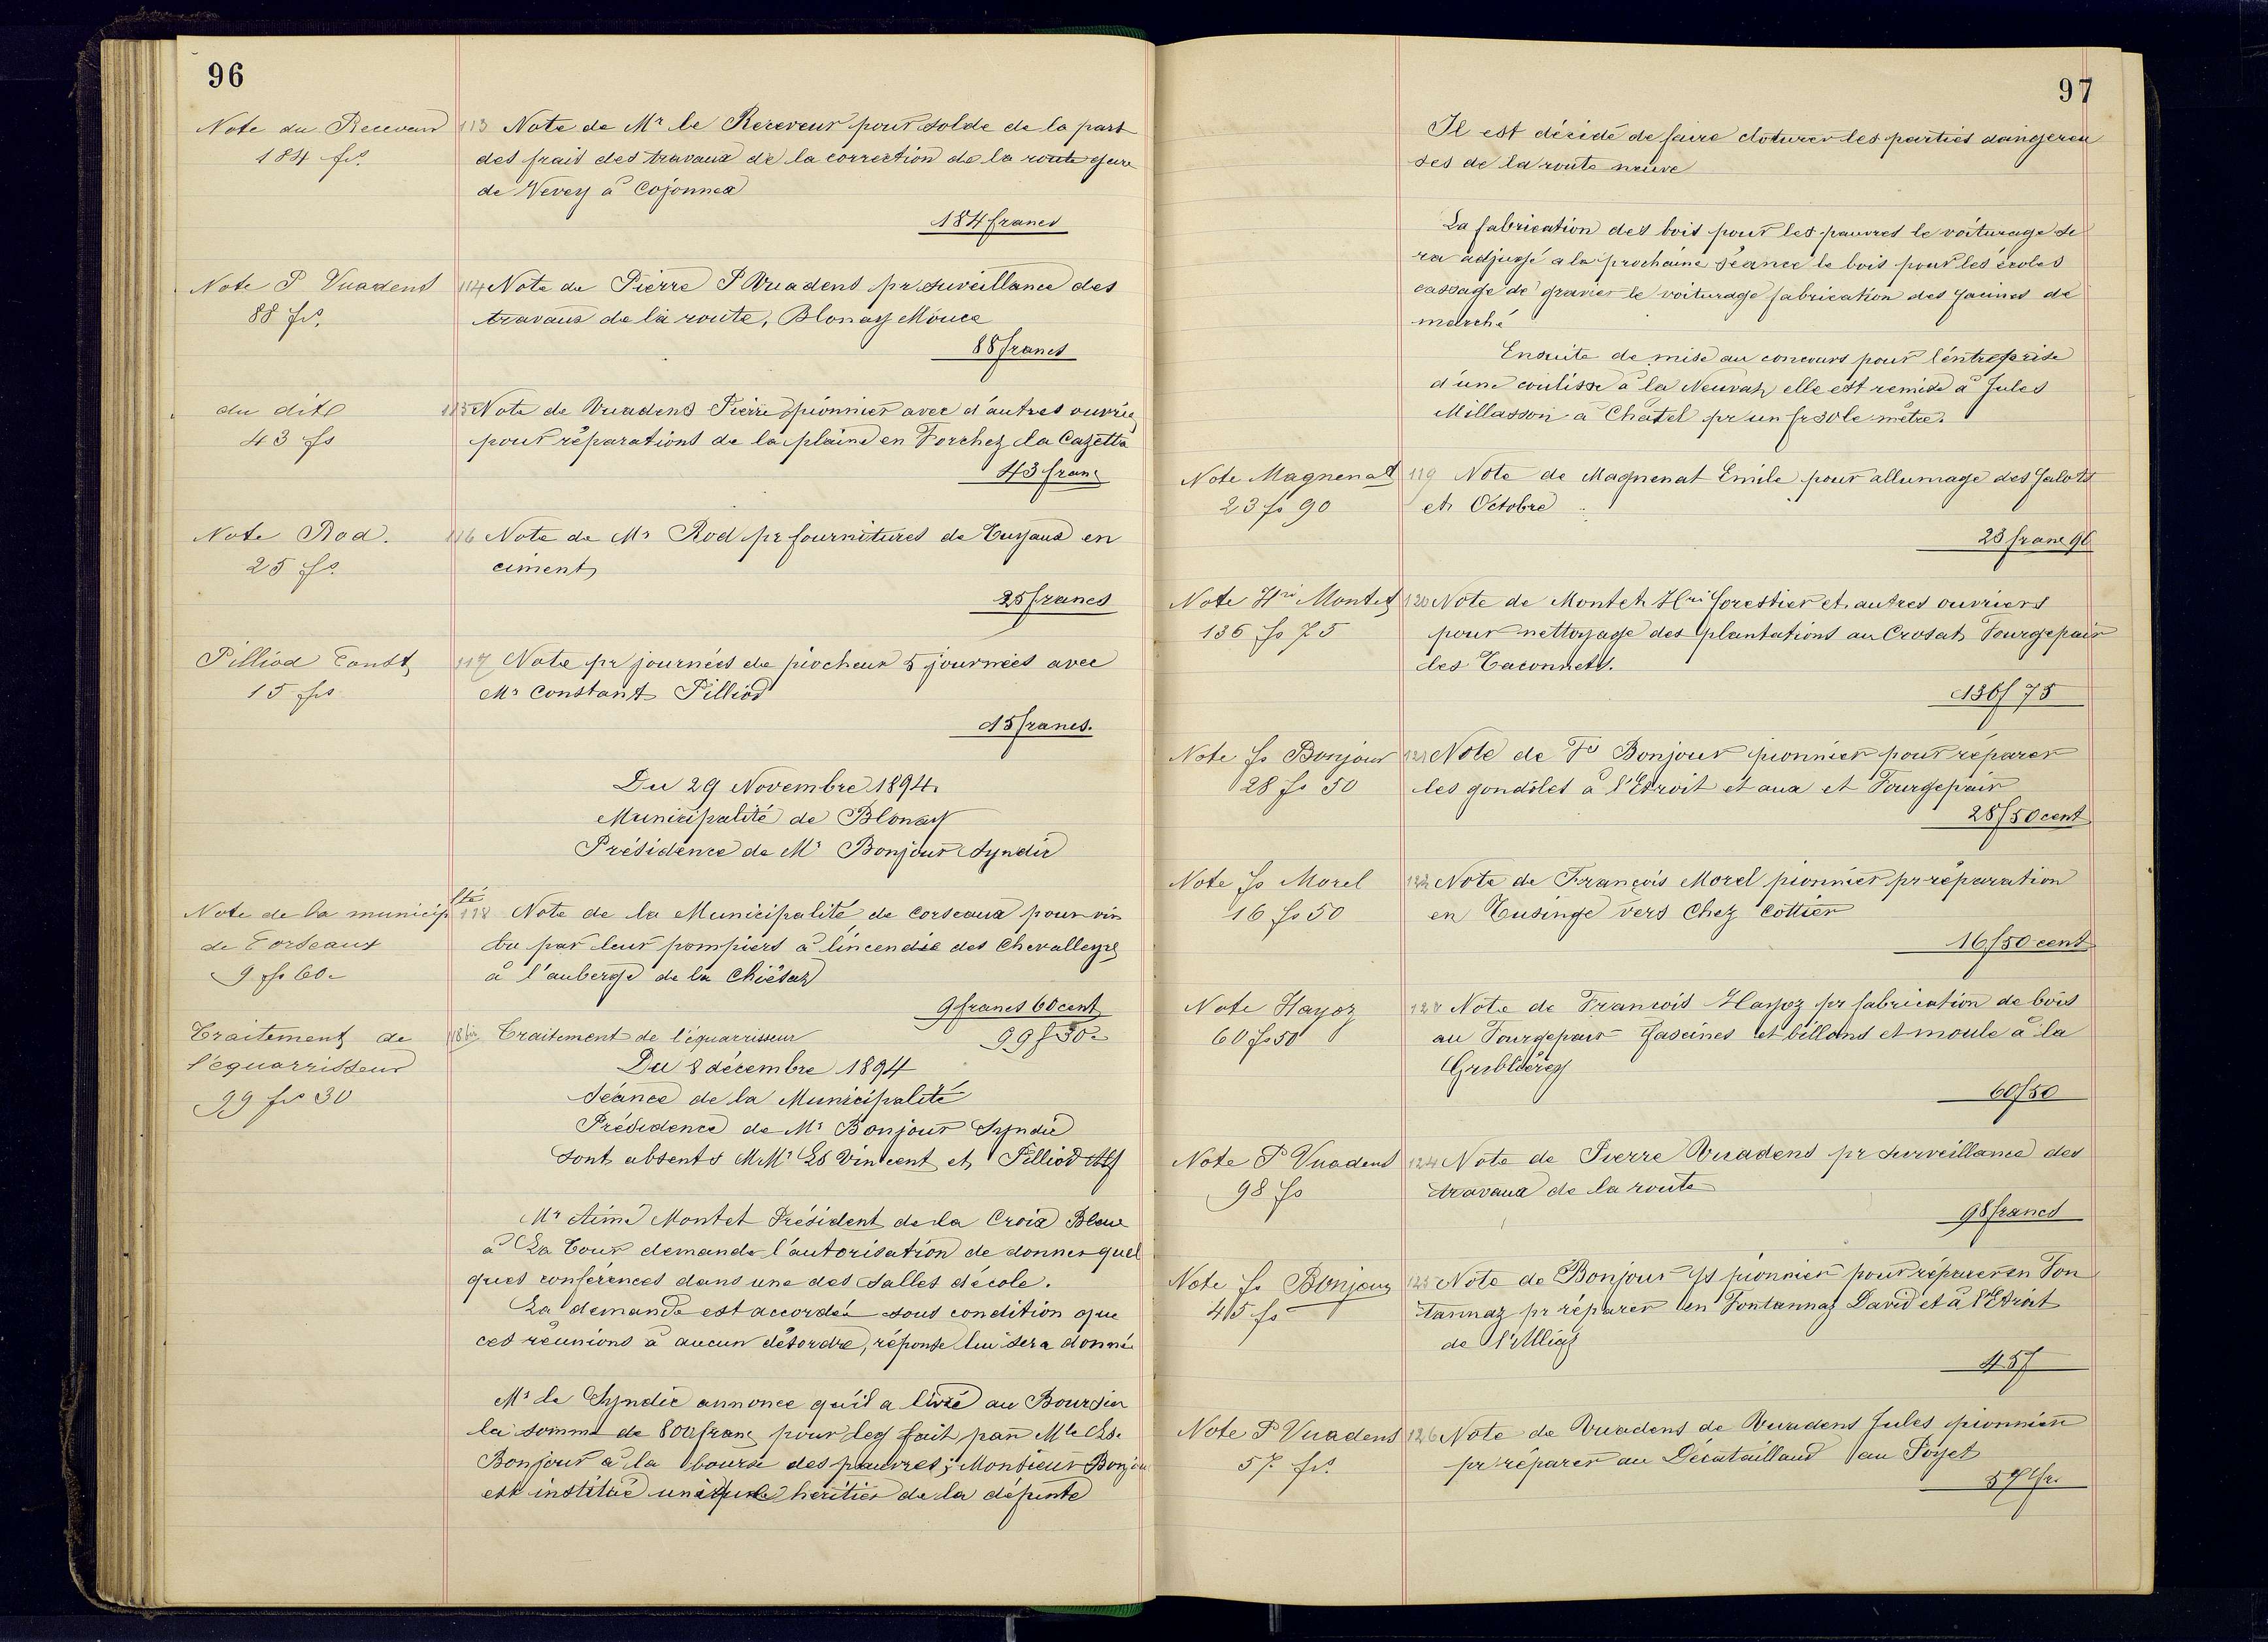 96
Note du Receveur
184 frs.
113 Note de Mr le Receveur pour solde de la part
des frais des travaux de la correction de la route gare
de Vevey à Cojonnex
184 francs
Note P Vuadens
88 frs.
114 Note de Pierre P Vuadens pr surveillance des
travaux de la route, Blonay Mouce
88 francs
du dit
43 fs
115 Note de Vuadens Pierre pionnier avec d'autres ouvrie
pour réparations de la plaine en Forchez la Cazetta
43 franc
Note Rod.
25 fs.
116 Note de Mr Rod pr fournitures de Tuyaux en
ciment
25 francs
Pilliod Const
15 frs
117 Note pr journées de piocheur 5 journées avec
Mr Constant Pilliod
15 francs.
Du 29 Novembre 1894.
Municipalité de Blonay
Présidence de Mr Bonjour Syndic
Note de la municip lté
de Corseaux
9 fs 60.
118 Note de la Municipalité de Corseaux pour vin
bu par leur pompiers à l'incendie des Chevalleyre
à l'auberge de la Chiésaz
9 francs 60 cent
Traitement de
l'équarrisseur
99 frs 30
118 bis Traitement de l'équarrisseur 99 f 30
Du 8 décembre 1894
Séance de la Municipalité
Présidence de Mr Bonjour Syndic
sont absents M.Mr Ls Vincent et Pilliod Alf
Mr Aimé Montet Président de la Croix Bleue
à La Tour demande l'autorisation de donner quel
ques conférences dans une des salles d'école.
La demande est accordée sous condition que
ces réunions à aucun désordre, réponse lui sera donnée
Mr le Syndic annonce qu'il a livré au Boursier
la somme de 800 franc pour leg fait par Mle Ls.
Bonjour à la bourse des pauvres; Monsieur Bonjou
est institué unique héritier de la défunte
97
Il est décidé de faire cloturer les parties dangereu
ses de la route neuve
La fabrication des bois pour les pauvres le voiturage se
ra adjugé a la prochaine séance le bois pour les écoles
cassage de gravier le voiturage fabrication des facines de
marché
Ensuite de mise au concours pour l'entreprise
d'une coulisse à la Neuvaz elle est remise à Jules
Millasson à Châtel pr un fr 30 le mètre.
Note Magnenat
23 fs 90
119 Note de Magnenat Emile pour allumage des falots
et Octobre
23 franc 90
Note Hri Montet
136 fs 75
120 Note de Montet Hri forestier et autres ouvriers
pour nettoyage des plantations au Crosat Fourgepais
les Taconnets.
136 f 75
Note fs Bonjour
28 fs 50
121 Note de Fs Bonjour pionnier pour réparer
les gondoles à l'Etroit et aux et Fourgepais
28 f 50 cent
Note fs Morel
16 fs 50
122 Note de François Morel pionnier pr réparation
en Tusinge vers Chez Cottier
16 f 50 cent
Note Hayoz
60 fs 50
123 Note de Francois Hayoz pr fabrication de bois
au Fourgepais fascines et billons et moule à la
60 f 50
Note P Vuadens
98 fs
124 Note de Pierre Vuadens pr surveillance des
travaux de la route
98 francs
Note fs Bonjour
45 fs
125 Note de Bonjour fs pionnier pour réparer en Fon
tannaz pr réparer en Fontannaz David et à l'Etroit
de l'Alliaz
45 f
Note P Vuadens
57 frs.
126 Note de Vuadens de Vuadens Jules pionnier
pr réparer au Décatailland au Poyet
57 frs